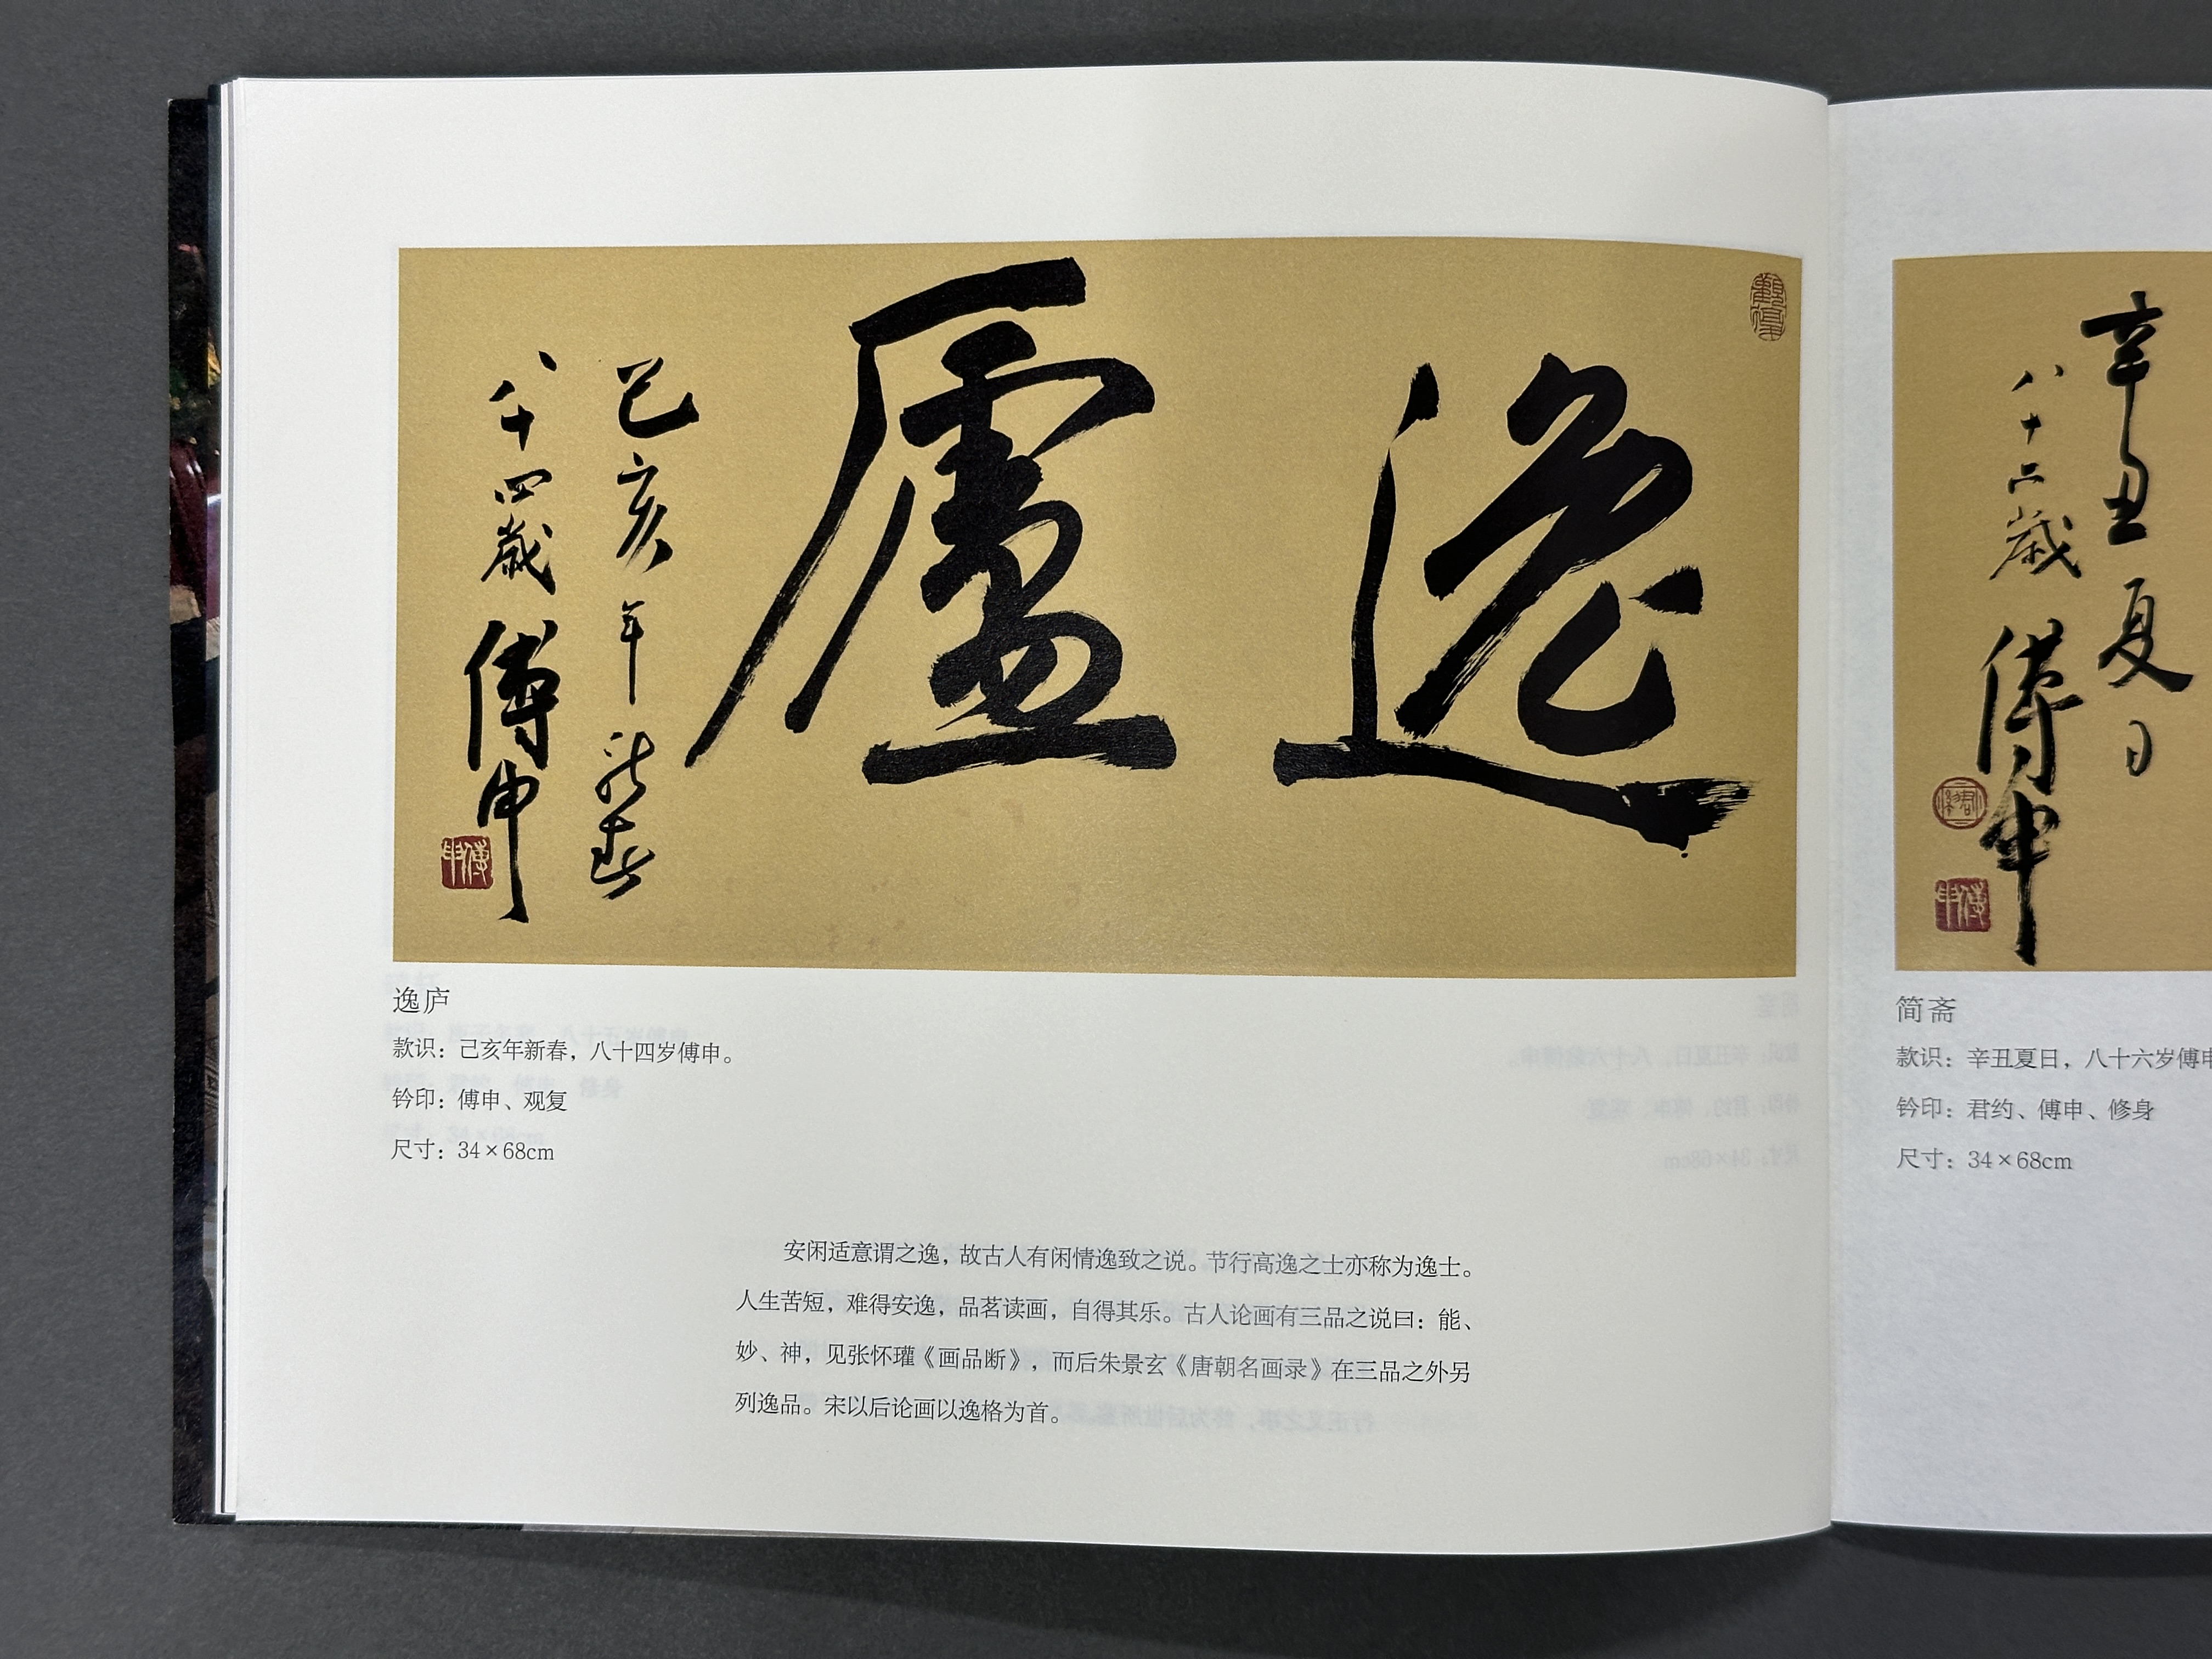 逸廬
己亥年新春
八十四歲傅申
傅申
觀復
逸庐
款识：己亥年新春，八十四岁傅申。
钤印：傅申、观复
尺寸：34×68cm
安闲适意谓之逸，故古人有闲情逸致之说。节行高逸之士亦称为逸士。
人生苦短，难得安逸，品茗读画，自得其乐。古人论画有三品之说曰：能、
妙、神，见张怀瓘《画品断》，而后朱景玄《唐朝名画录》在三品之外另
列逸品。宋以后论画以逸格为首。
辛丑夏日
八十六歲傅申
君约
傅申
简斋
款识：辛丑夏日，八十六岁傅申
钤印：君约、傅申、修身
尺寸：34×68cm